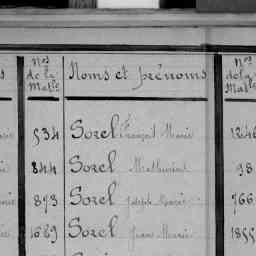 Nos de la Matle Noms et prénoms Nos de la Matle
534 Sorel François Marie 1246
844 Sorel Mathurin 98
873 Sorel Joseph Marie 766
1689 Sorel Jean Marie 1855